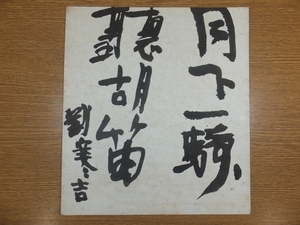 月下一騎
聽胡笛
劉寒吉